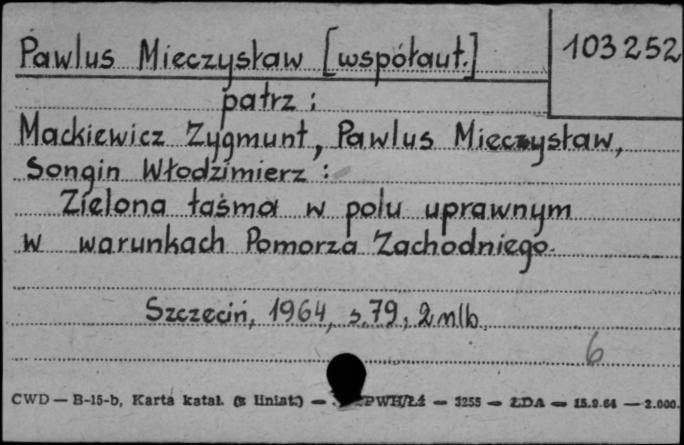 Pawlus Mieczysław [współaut.] 103 252
patrz :
Mackiewicz Zygmunt, Pawlus Mieczysław,
Songin Włodzimierz :
Zielona taśma w polu uprawnym
w warunkach Pomorza Zachodniego.
Szczecin, 1964, s. 79, 2 nlb.
6
CWD — B-15-b, Karta katal. (z liniat.) — PWH/Łź — 3255 — ŁDA — 15.9.64 — 2.000.